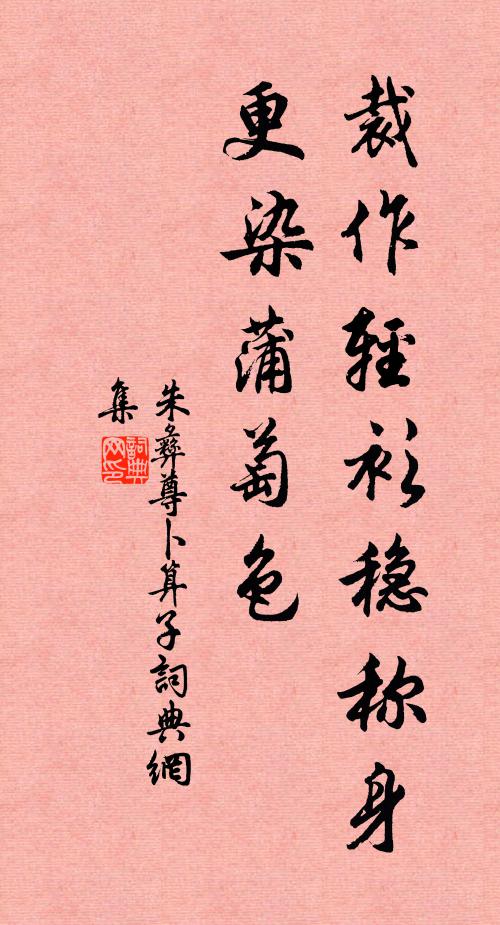 裁作輕衫稳称身
更染蒲萄色
朱彝尊卜算子詞典網
集
詞典网印